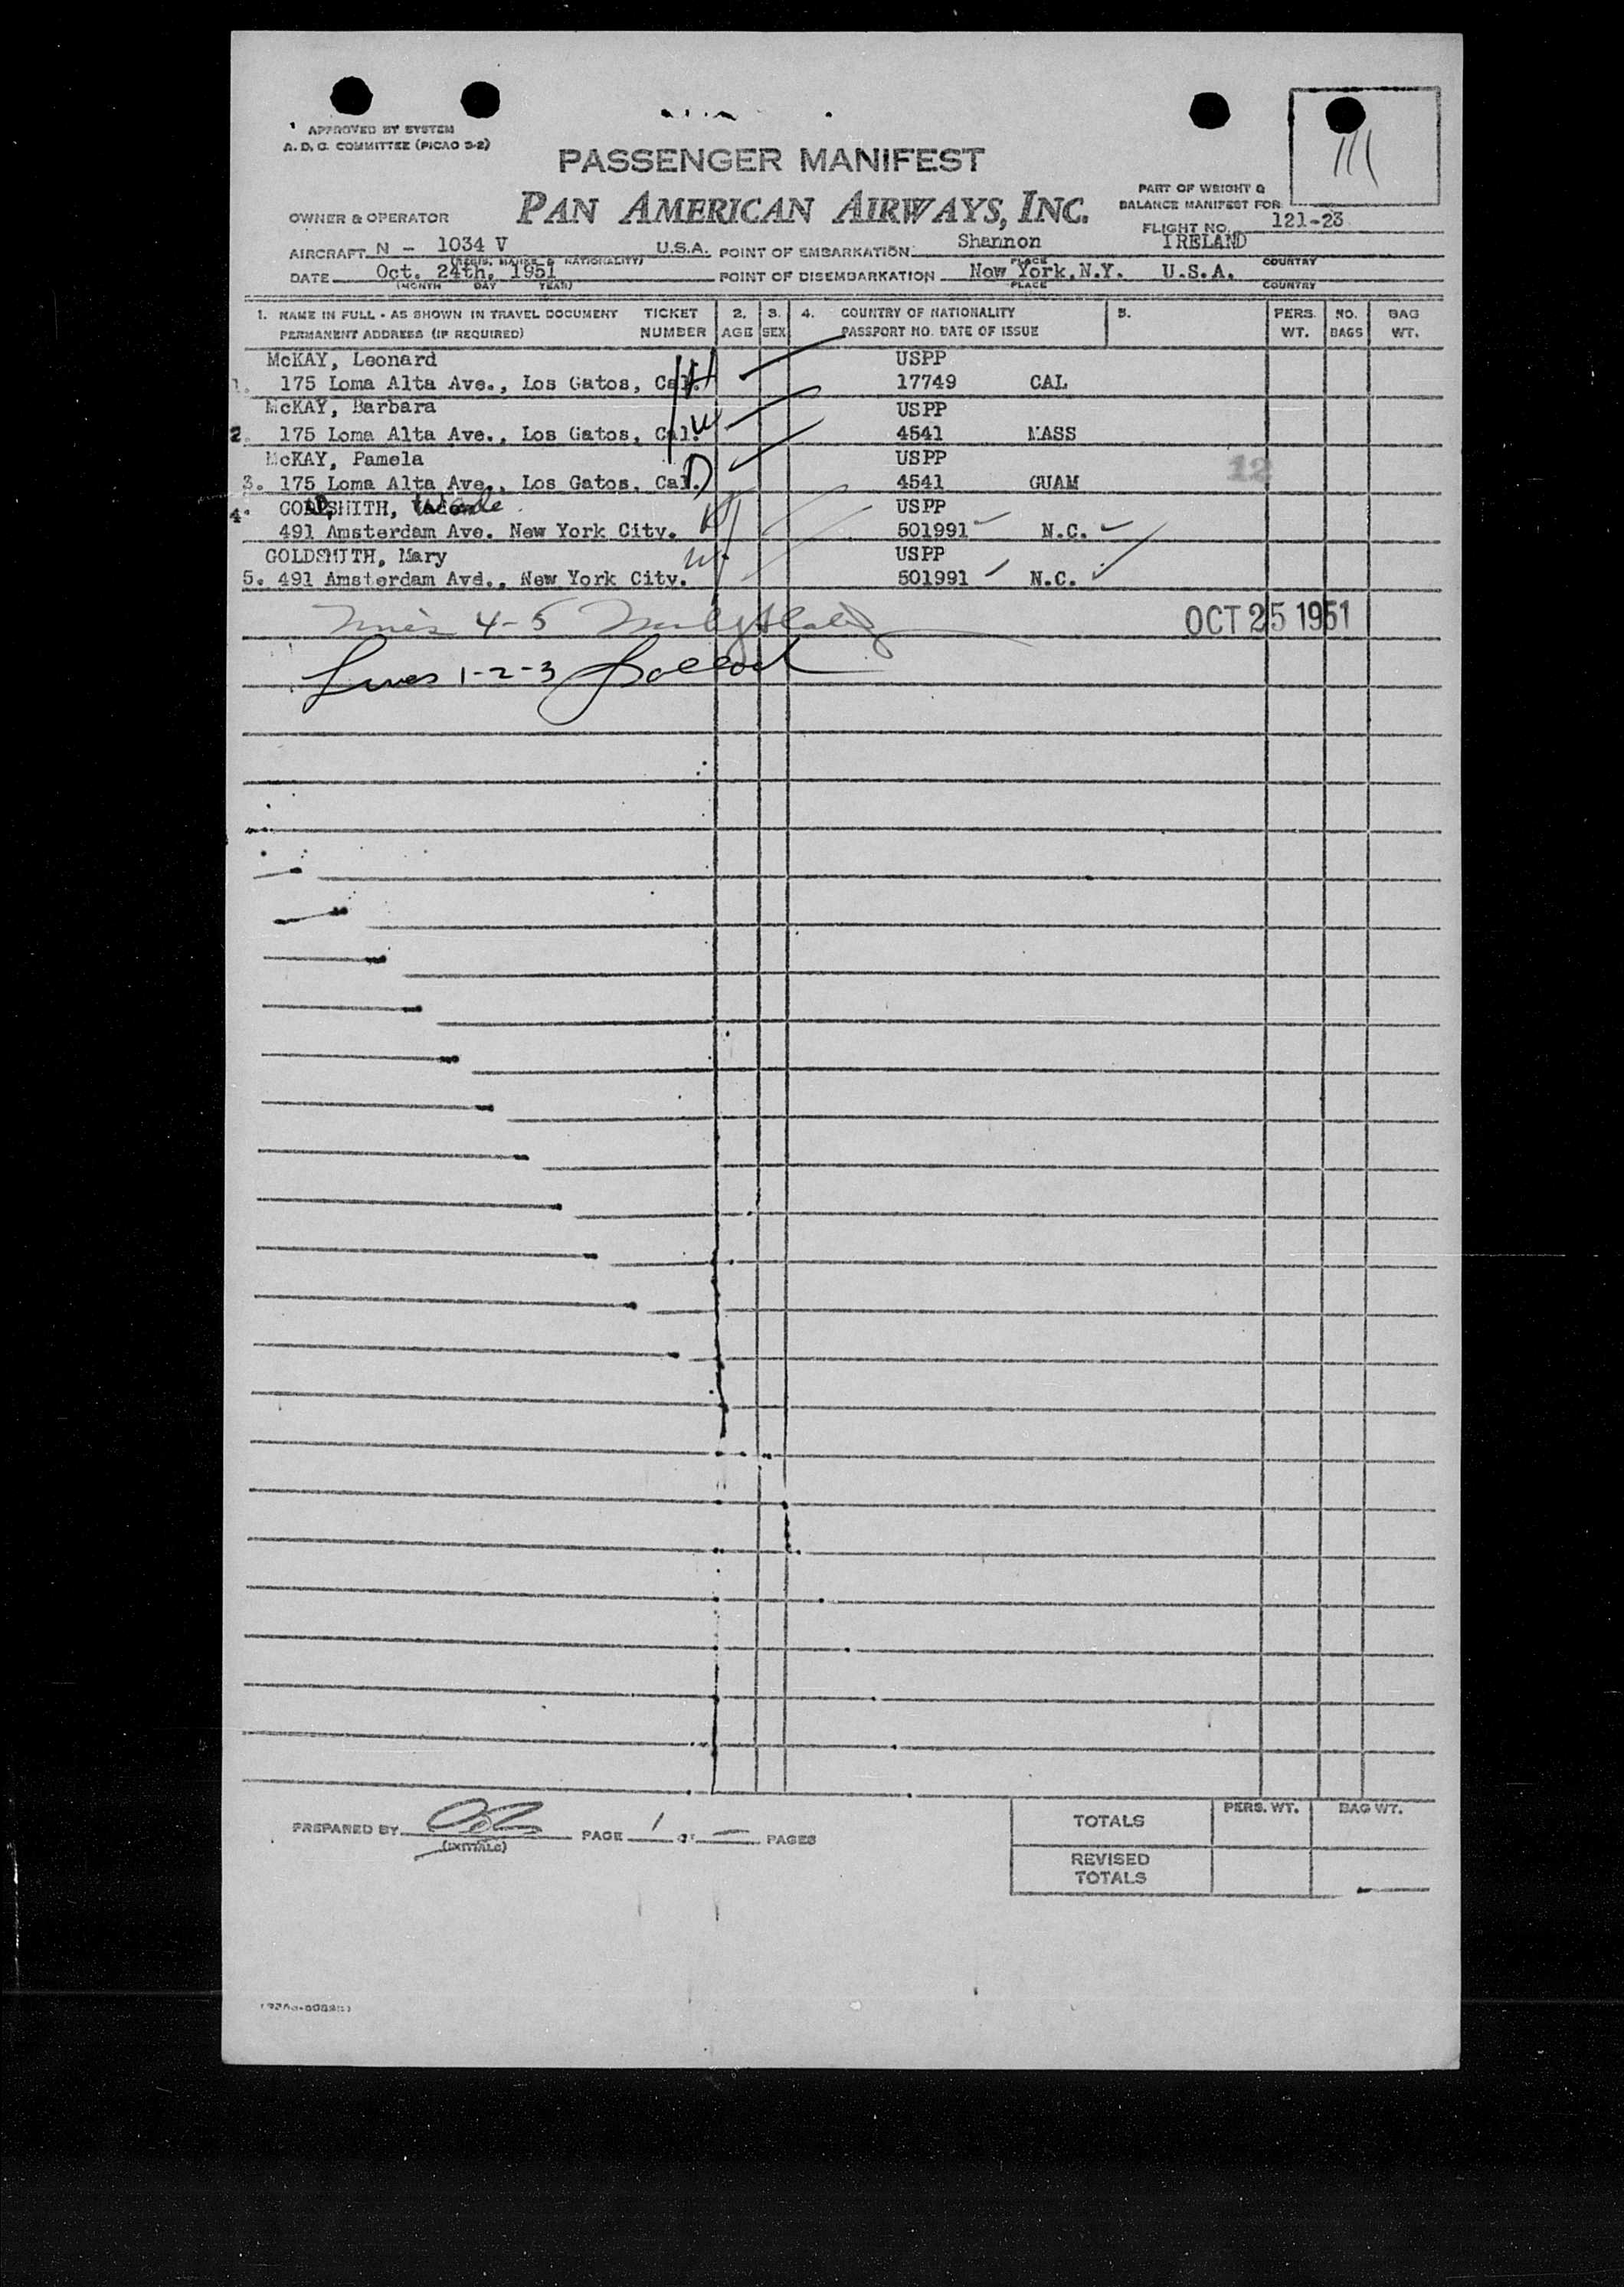 APPROVED BY SYSTEM
A. D. C. COMMITTEE (PICAO S-2)
PASSENGER MANIFEST
PAN AMERICAN AIRWAYS, INC.
PART OF WEIGHT &
BALANCE MANIFEST FOR
FLIGHT NO. 121-23
OWNER & OPERATOR
AIRCRAFT N - 1034 V U.S.A. POINT OF EMBARKATION Shannon IRELAND
(REGIS. MARKS & NATIONALITY) PLACE COUNTRY
DATE Oct. 24th, 1951 POINT OF DISEMBARKATION New York, N.Y. U.S.A.
(MONTH DAY YEAR) PLACE COUNTRY
1. NAME IN FULL - AS SHOWN IN TRAVEL DOCUMENT TICKET 2. 3. 4. COUNTRY OF NATIONALITY 5. PERS. NO. BAG
PERMANENT ADDRESS (IF REQUIRED) NUMBER AGE SEX PASSPORT NO. DATE OF ISSUE WT. BAGS WT.
McKAY, Leonard USPP
1. 175 Loma Alta Ave., Los Gatos, Cal. H 17749 CAL
McKAY, Barbara USPP
2. 175 Loma Alta Ave., Los Gatos, Cal. W 4541 MASS
McKAY, Pamela USPP
3. 175 Loma Alta Ave., Los Gatos, Cal. D 4541 GUAM 12
4. GOLDSMITH, USPP
491 Amsterdam Ave. New York City. H 501991 N.C.
GOLDSMITH, Mary USPP
5. 491 Amsterdam Avd., New York City. W 501991 N.C.
4-5 OCT 25 1951
Lines 1-2-3
PREPARED BY (INITIALS) PAGE 1 OF - PAGES
TOTALS PERS. WT. BAG WT.
REVISED
TOTALS